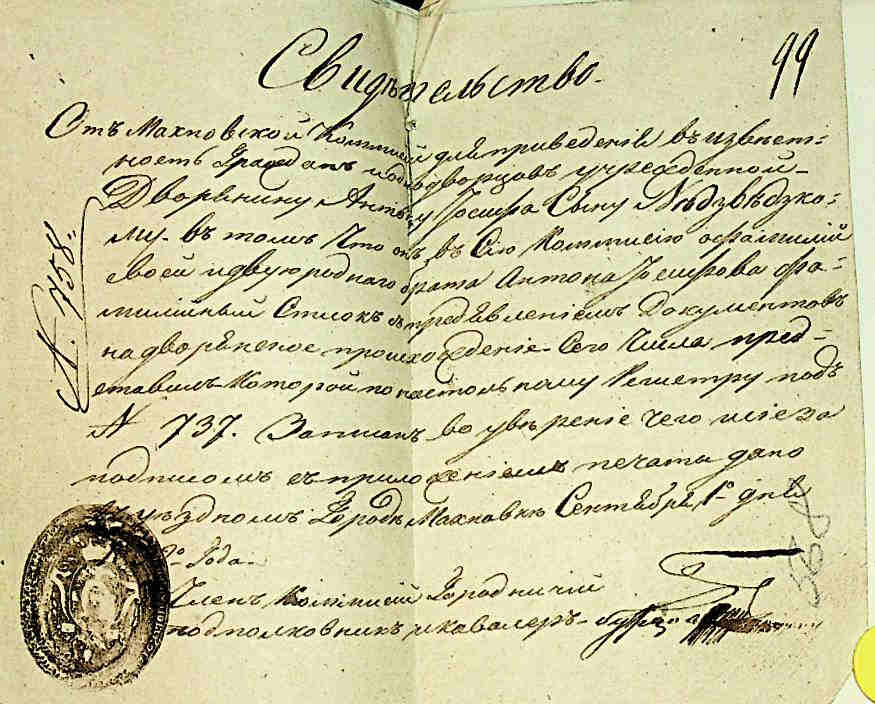 99
Свидѣтельство.
Отъ Махновской Коммисіи для приведенія въ извѣст=
ность Граждан и однодворцов учрежденной
Дворянину Антону Іосифа Сыну Нѣдзвѣдзко=
му. въ томъ Что онъ въ Сію Коммисію о фамиліи
своей и двуроднаго брата Антона Іосифова фа=
милійный Списокъ съ предъявленіемъ Документовъ
на дворянское происхожденіе Сего Числа пред=
ставилъ Которой по настольному Регистру подъ
N 737. Записанъ во увѣреніе чего сіе за
подписомъ съ приложеніемъ печати дано
уѣздномъ Городѣ Махновкѣ Сентября 1º дня
Года.
Членъ Коммисіи Городничій
подполковникъ и кавалеръ
N. 758.
568